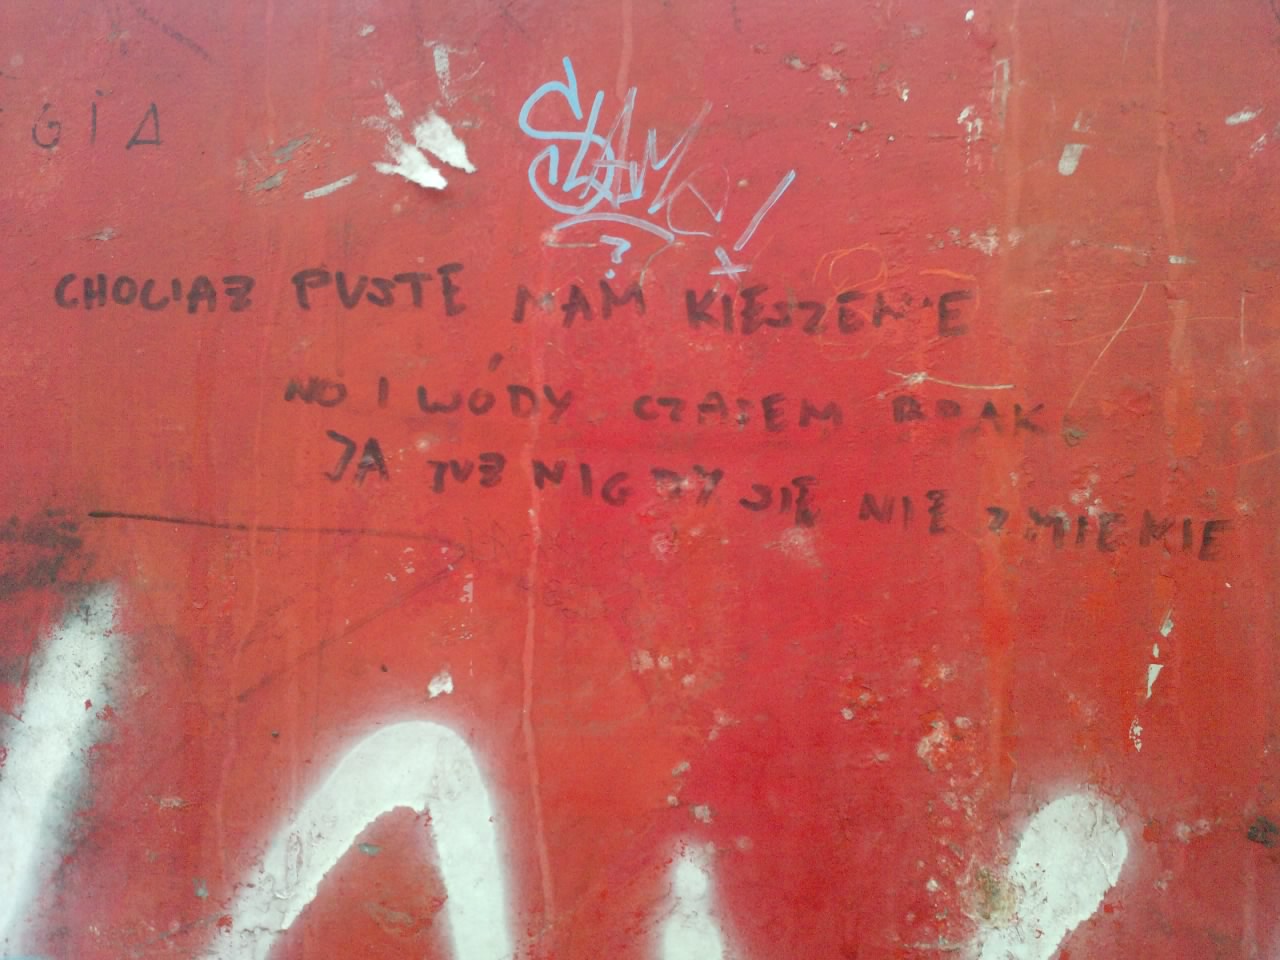 GIA
CHOCIAZ PUSTE MAM KIESZENIE
NO I WÓDY CZASEM BRAK
JA JUZ NIGDY SIĘ NIE ZMIENIE